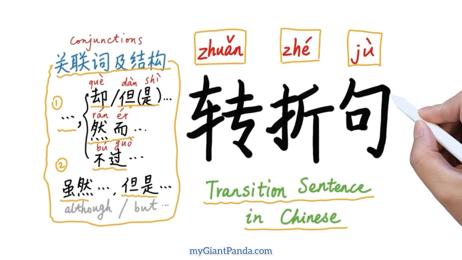 Conjunctions
关联词及结构
què dàn shì
① …, 却/但(是)…
rán ér
然而…
bú guò
不过…
②
虽然…, 但是…
although / but…
zhuǎn zhé jù
转折句
Transition Sentence
in Chinese
myGiantPanda.com